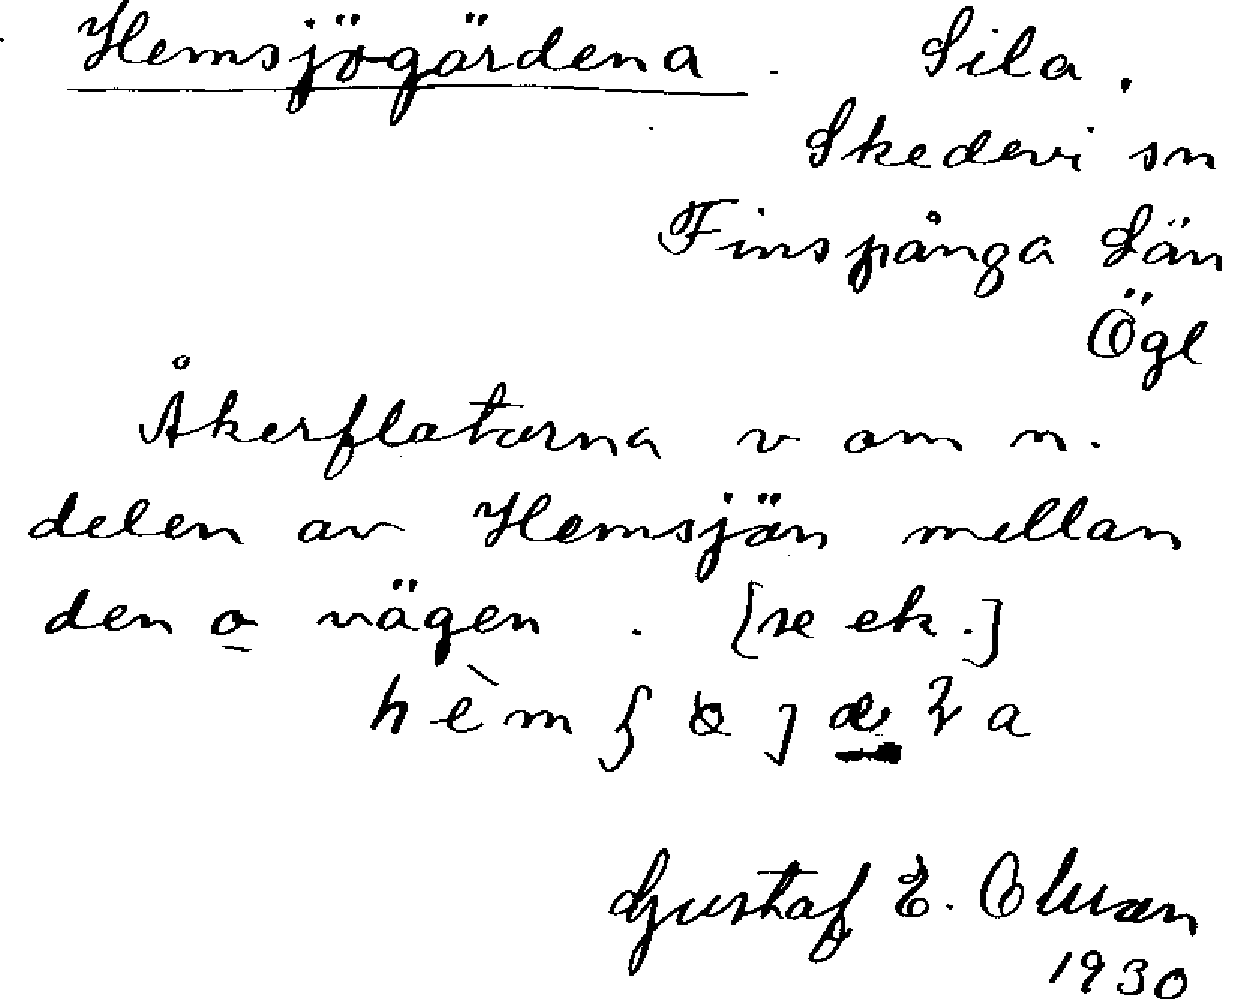 Hemsjögärdena. Sila.
Skedevi sn
Finspånga Län
Ögl
Åkerflatarna v om n.
delen av Hemsjön mellan
den o vägen. [se ek.]
Gustaf E.
1930